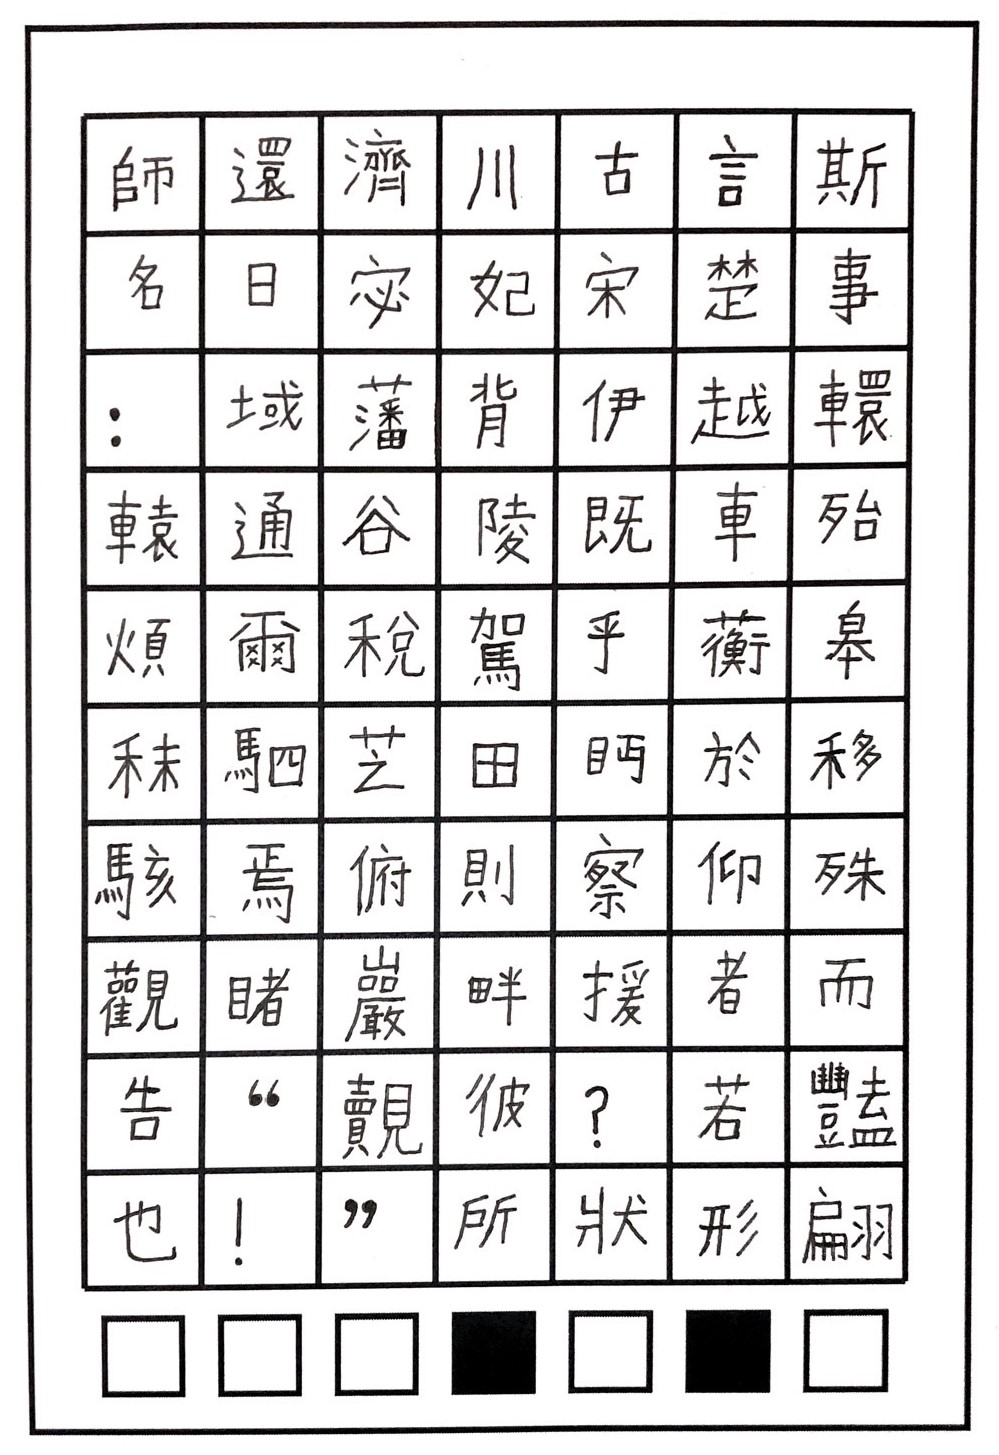 師還濟川古言斯
名日宓妃宋楚事
：域藩背伊越轘
轅通谷陵既車殆
煩爾稅駕乎蘅皋
秣駟芝田眄於移
駭焉俯則察仰殊
觀睹巖畔援者而
告“覿彼？若豔
也！”所狀形翩